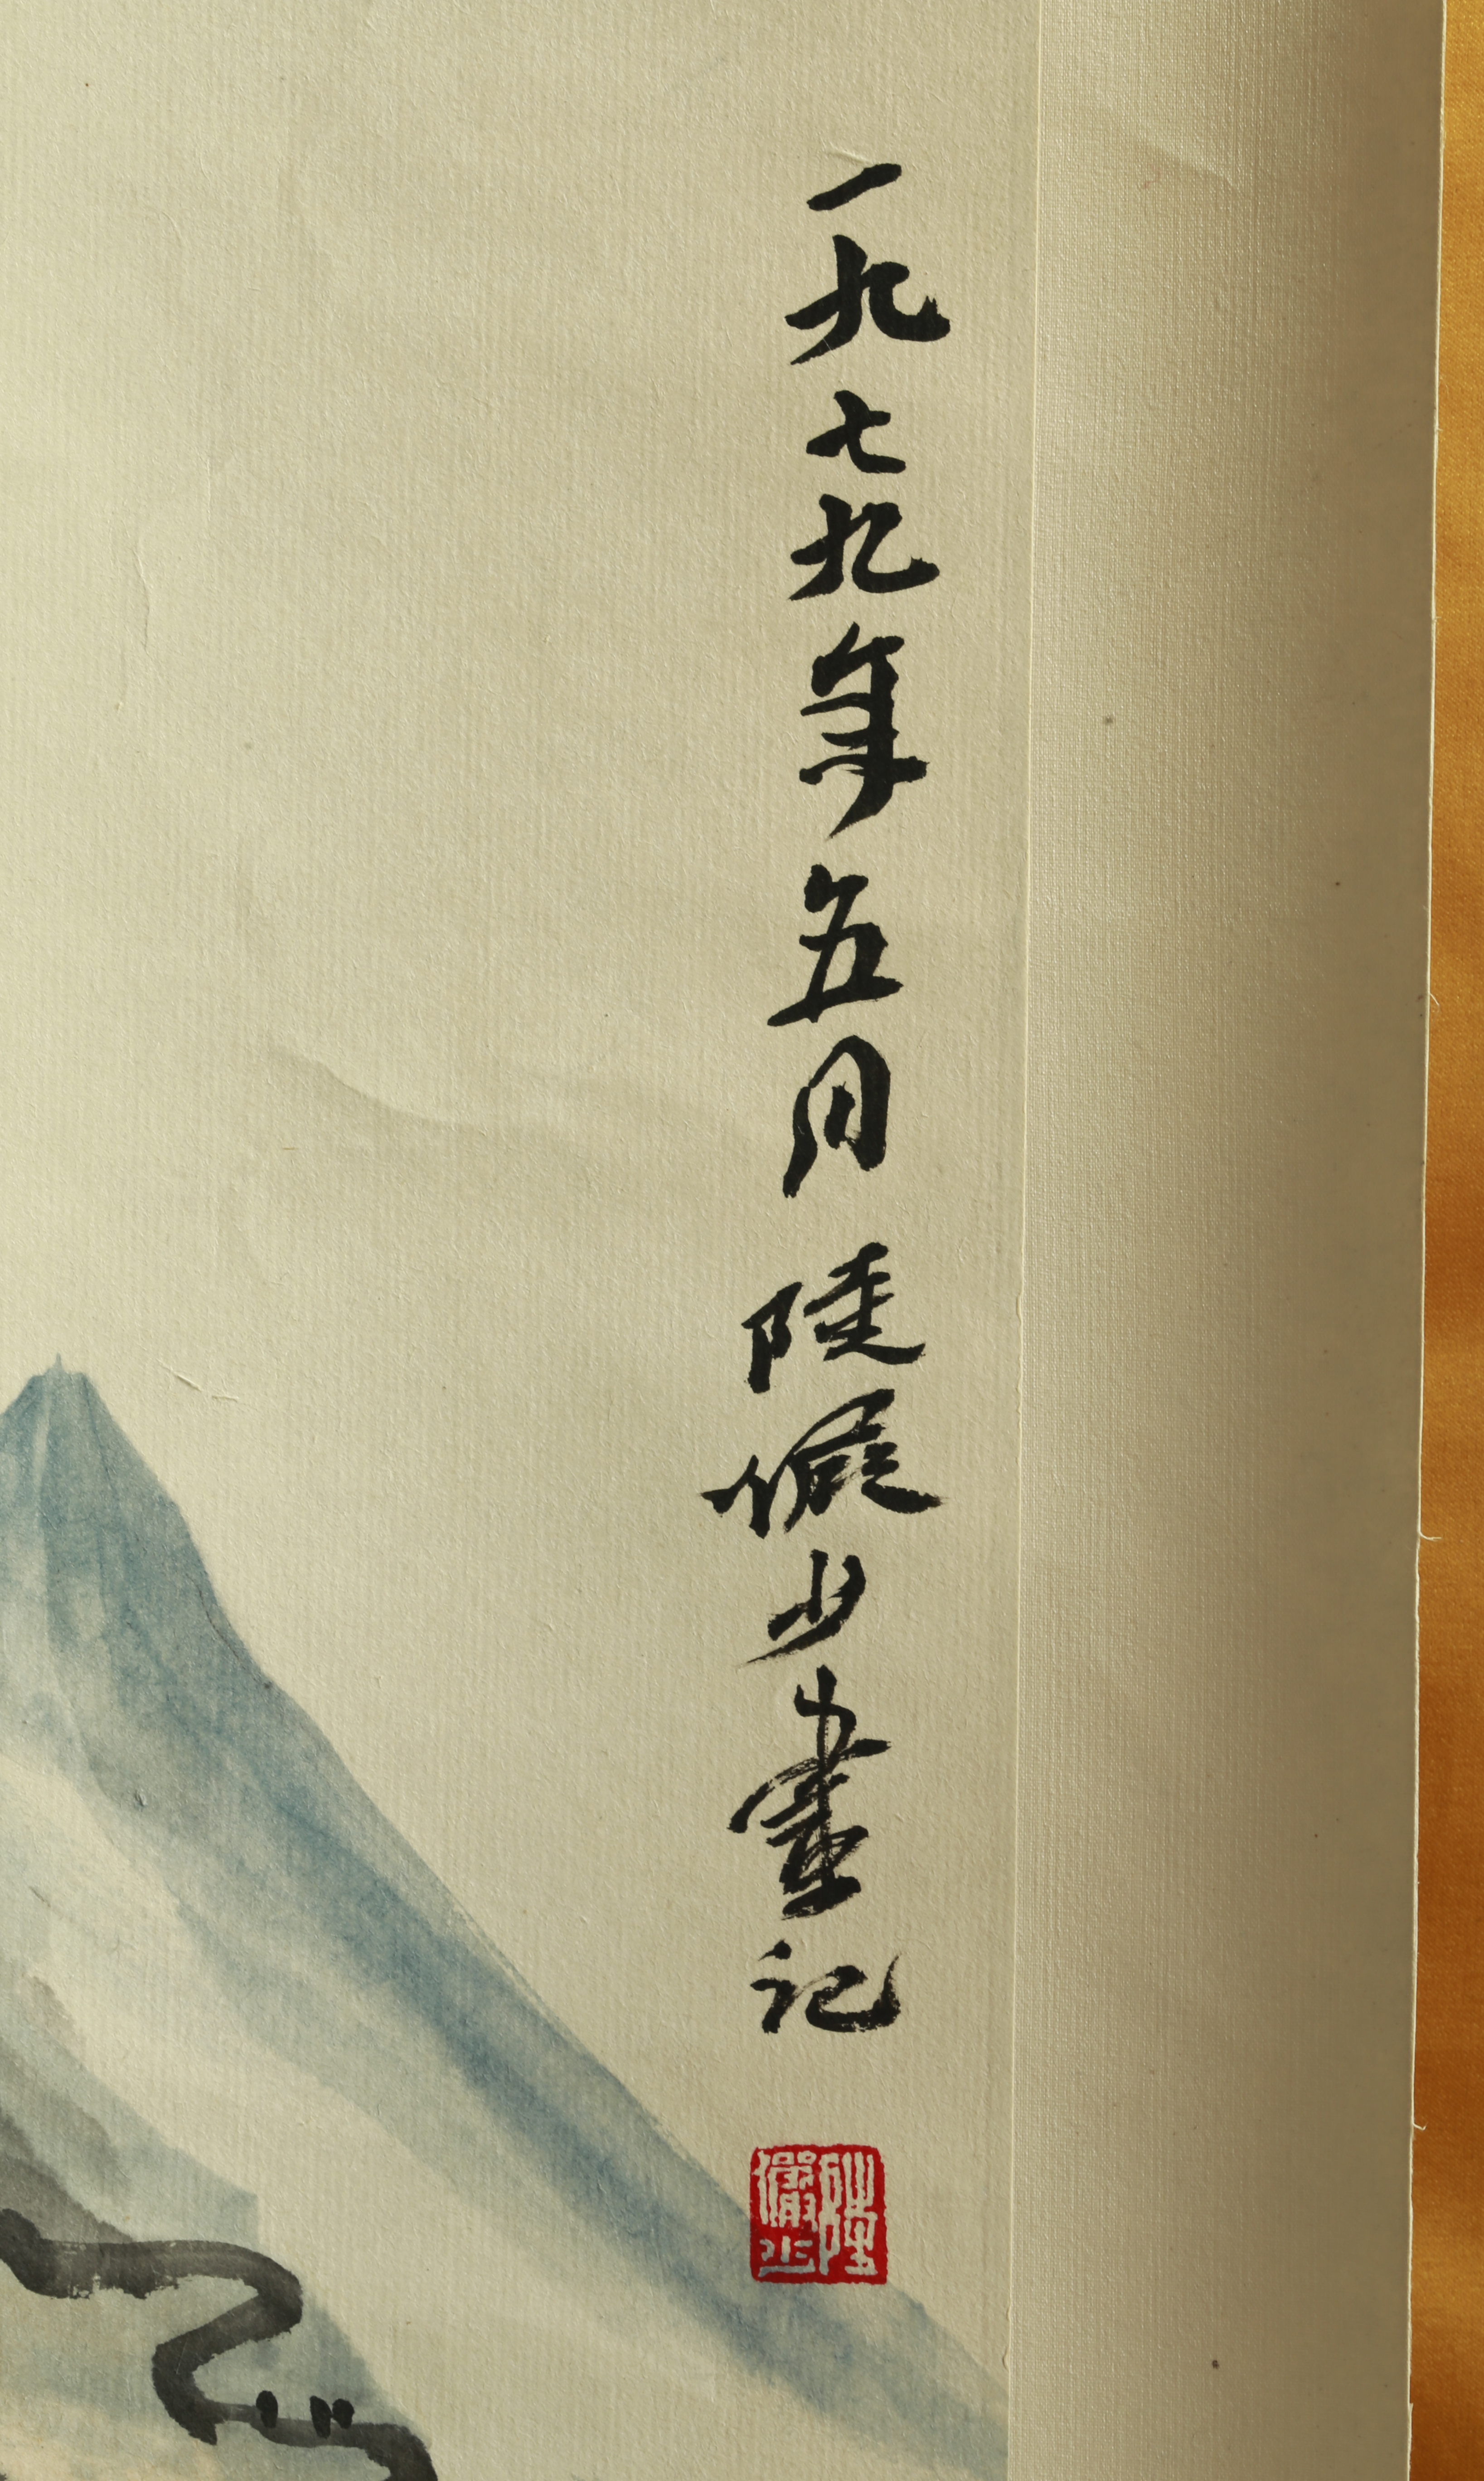 一九七九年五月陸儼少畫記
陸儼少